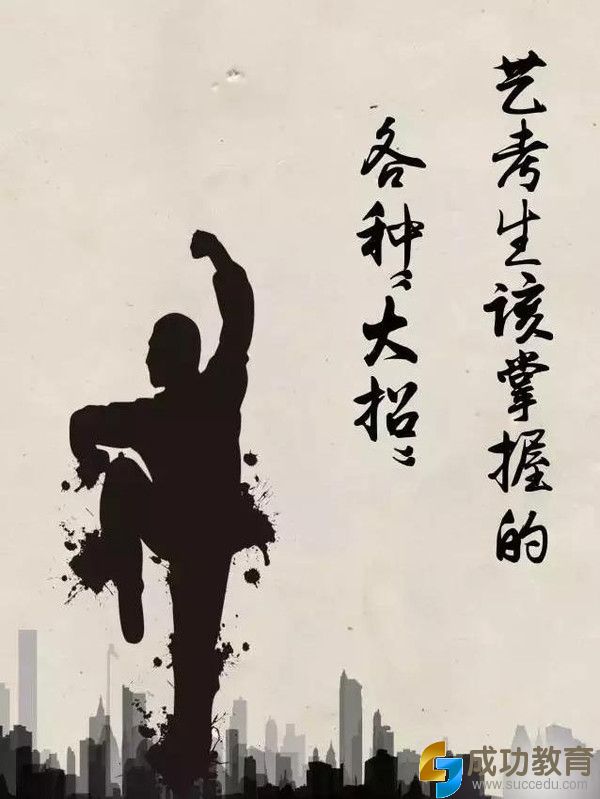 艺考生该掌握的
各种“大招”
成功教育
www.succedu.com